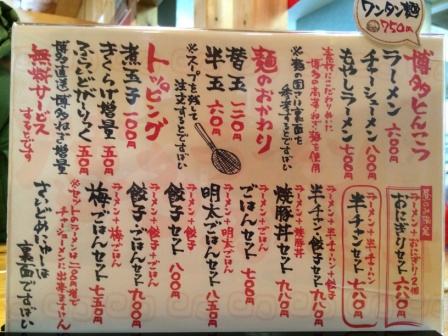 ワンタン麺
750円
博多とんこつ
ラーメン 600円
チャーシューメン 800円
もやしラーメン 700円
素材にこだわりぬいた
博多の高菜
ねぎを使用
※麺の固さは裏面を
参考にするとですばい
麺のおかわり
替玉 120円
半玉 80円
※スープを残して
注文するとですばい
トッピング
煮玉子 100円
きくらげ増量 50円
博多直送ねぎ増量
無料サービス
するとです
ラーメン+おにぎり2個
おにぎりセット 680円
ラーメン+半チャーハン
半チャンセット
ラーメン+半チャーハン+餃子
半チャン餃子セット 980円
ラーメン+焼豚丼
焼豚丼セット 980円
ラーメン+ごはん
ごはんセット 700円
ラーメン+明太ごはん
明太ごはんセット 850円
ラーメン+餃子
餃子セット 800円
ラーメン+餃子+ごはん
餃子ごはんセット 900円
ラーメン+梅ごはん
梅ごはんセット 750円
※セットのラーメンは100円増しで
チャーシューメンに出来ますばい
さいどめにゅーは
裏面ですばい